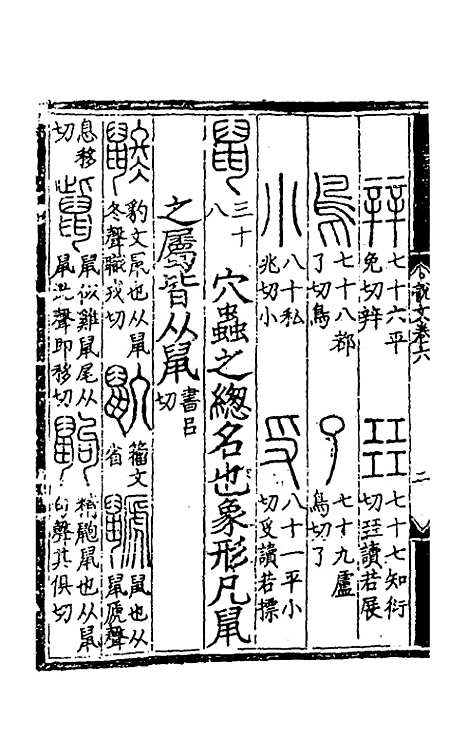 說文卷六 二
辡 七十六平免切辡 㠭 七十七知衍切㠭讀若展
鳥 七十八都了切鳥 了 七十九盧鳥切了
小 八十私兆切小 𠬪 八十一平小切𠬪讀若摽
鼠 三十八 穴蟲之總名也象形凡鼠
之屬皆从鼠 書呂切
鼨 豹文鼠也从鼠冬聲職戎切 籀文省 鼶 鼠也从鼠虒聲
息移切 鼠似雞鼠尾从鼠此聲即移切 鼩 精鼩鼠也从鼠句聲其俱切